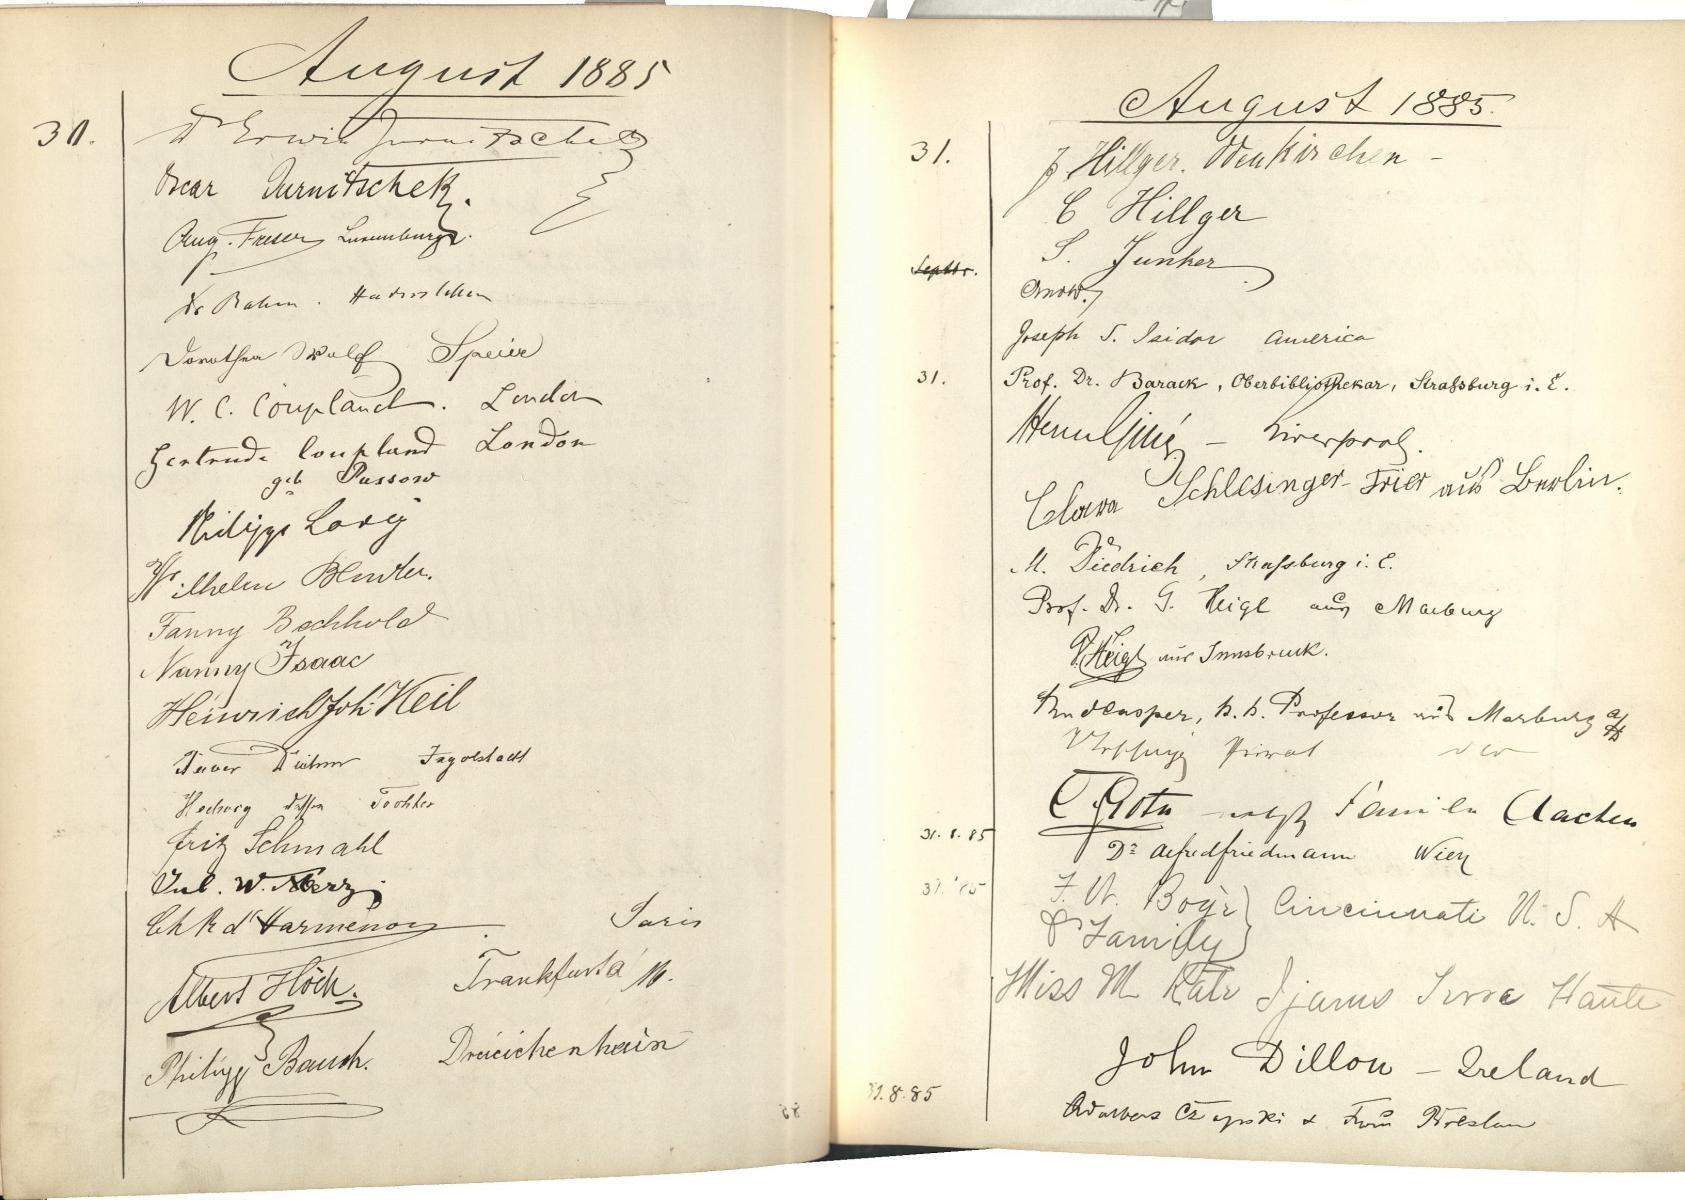 August 1885
31.
Dr Erwin Jurnitschek
Oscar Jurnitschek.
Aug. Freser Luxemburg.
Dr Rahm. Hadersleben
Dorothea Wulf Speier
W. C. Coupland. London
Gertrude Coupland London
geb Passow
Philipp Lorg
Wilhelm
Fanny Bechhold
Nanny Isaac
Heinrich Joh Keil
Ingolstadt
Hedwig dessen Tochter
Fritz Schmahl
Jul. W. Merz
Chr d'Harmenon Paris
Albert Höch. Frankfurt a/M.
Philipp Baush. Dreieichenhain
August 1885.
31.
J Hillger. Odenkirchen -
C Hillger
S. Junker
Septbr.
Joseph S. Isidor America
31.
Prof. Dr. Barack, Oberbibliothekar, Straßburg i. E.
- Liverpool.
Clara Schlesinger-Frier aus Berlin.
M. Diedrich, Straßburg i. E.
Prof. Dr. G. Heigl aus Marburg
Heigl aus Innsbruck.
Rud Casper, k. k. Professor aus Marburg a/D
Privat
C Roth nebst Familie Aachen
31.8.85
Dr Alfred Friedmann Wien
31. '85
& Family } Cincinnati U. S. A
Miss M Kate Ijams Terre Haute
John Dillon - Ireland
31.8.85
Czapski & Frau Breslau